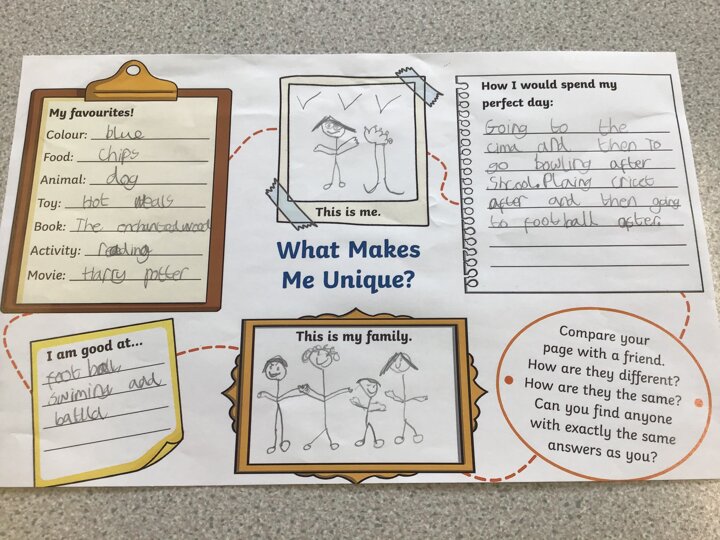 My favourites!
Colour: blue
Food: chips
Animal: dog
Toy: Hot weals
Book: The enchanted wood
Activity: reading
Movie: Harry potter
This is me.
What Makes
Me Unique?
How I would spend my
perfect day:
Going to the
cima and then To
go bowling after
Shcool. Plaing cricet
after and then going
to football after.
I am good at...
foot ball
swiming and
This is my family.
Compare your
page with a friend.
How are they different?
How are they the same?
Can you find anyone
with exactly the same
answers as you?